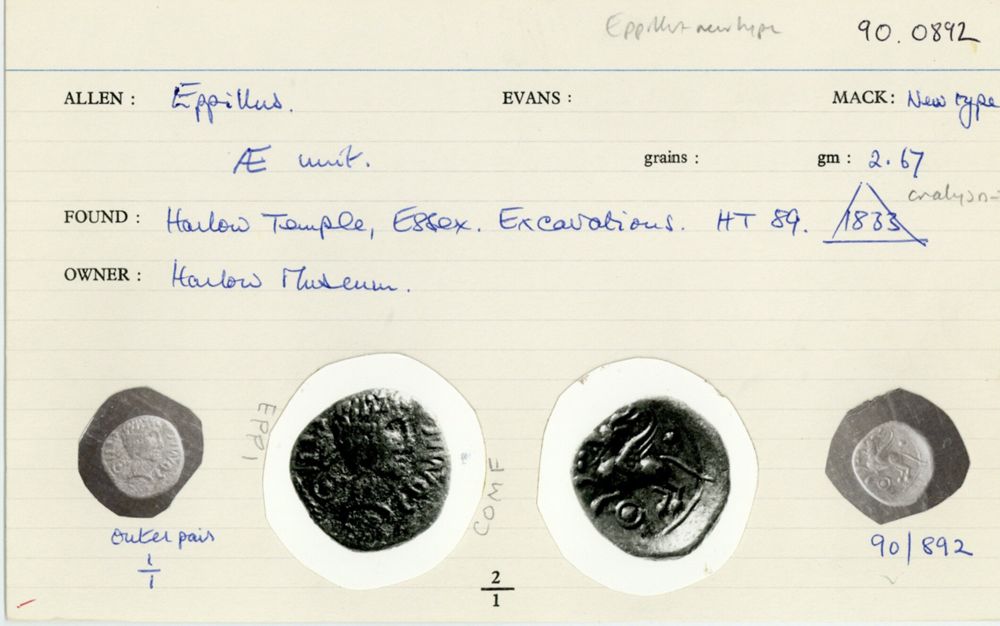 Eppillus new type
90.0892
ALLEN : Eppillus. EVANS : MACK: New type
Æ unit. grains : gm : 2.67
FOUND : Harlow Temple, Essex. Excavations. HT 89. 1833
OWNER : Harlow Museum.
EPPI
COMF
outer pair
1/1
2/1
90/892